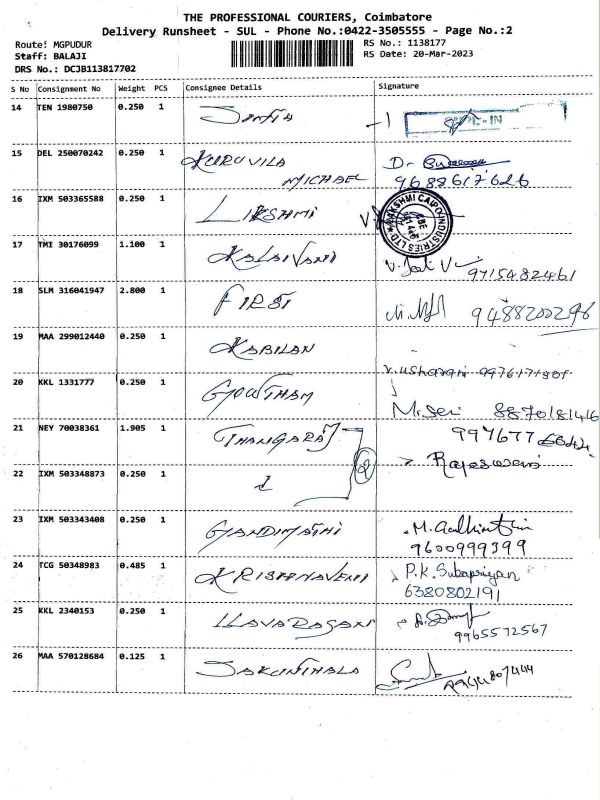 THE PROFESSIONAL COURIERS, Coimbatore
Delivery Runsheet - SUL - Phone No.:0422-3505555 - Page No.:2
Route: MGPUDUR
RS No.: 1138177
Staff: BALAJI
RS Date: 20-Mar-2023
DRS No.: DCJB113817702
S No Consignment No Weight PCS Consignee Details Signature
14 TEN 1980750 0.250 1
15 DEL 250070242 0.250 1 KURUVILA
MICHAEL
Dr
9688617626
16 IXM 503365588 0.250 1 LIKSHMI
17 TMI 30176099 1.100 1 KALAIVANI
9715482461
18 SLM 316041947 2.800 1 FIRST
9488200296
19 MAA 299012440 0.250 1 KABILAN
V. usharani 9976171301
20 KKL 1331777 0.250 1 GOWTHAM
8870181416
21 NEY 70038361 1.905 1 THANGARAJ
997677
Rajeswari
2
22 IXM 503348873 0.250 1 1
23 IXM 503343408 0.250 1 GANDIMATHI
M.
9600999399
24 TCG 50348983 0.485 1 KRISHNAVENI
P.K. Subapriyan
6380802191
25 KKL 2340153 0.250 1 ILAVARASAN
9965572567
26 MAA 570128684 0.125 1 SAKUNTHALA
9944807444